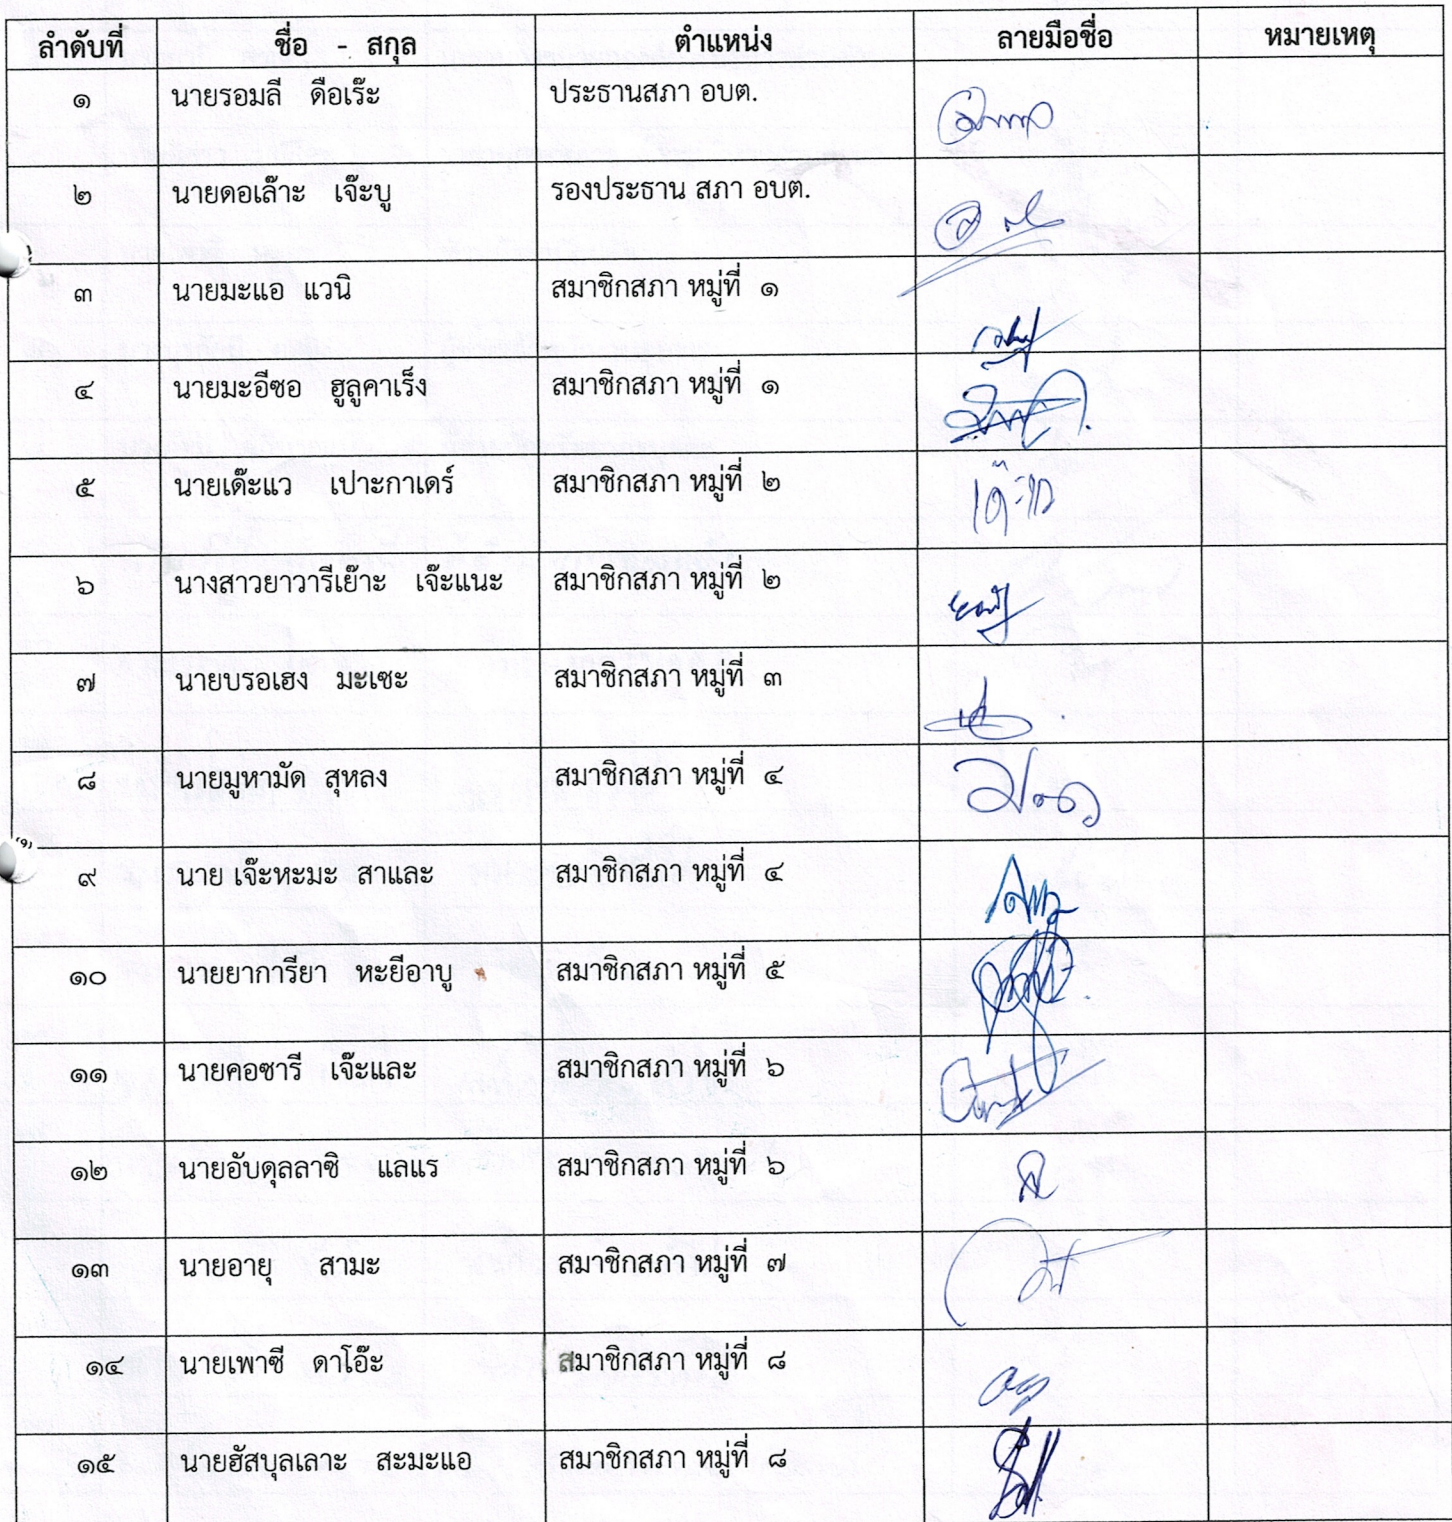 ลำดับที่ ชื่อ - สกุล ตำแหน่ง ลายมือชื่อ หมายเหตุ
๑ นายรอมลี ดือเร๊ะ ประธานสภา อบต.
๒ นายดอเล๊าะ เจ๊ะบู รองประธาน สภา อบต.
๓ นายมะแอ แวนิ สมาชิกสภา หมู่ที่ ๑
๔ นายมะอีซอ ฮูลูคาเร็ง สมาชิกสภา หมู่ที่ ๑
๕ นายเด๊ะแว เปาะกาเดร์ สมาชิกสภา หมู่ที่ ๒ เด๊ะแว
๖ นางสาวยาวารีเย๊าะ เจ๊ะแนะ สมาชิกสภา หมู่ที่ ๒
๗ นายบรอเฮง มะเซะ สมาชิกสภา หมู่ที่ ๓
๘ นายมูหามัด สุหลง สมาชิกสภา หมู่ที่ ๔
๙ นาย เจ๊ะหะมะ สาและ สมาชิกสภา หมู่ที่ ๔
๑๐ นายยาการียา หะยีอาบู สมาชิกสภา หมู่ที่ ๕
๑๑ นายคอซารี เจ๊ะและ สมาชิกสภา หมู่ที่ ๖
๑๒ นายอับดุลลาซิ แลแร สมาชิกสภา หมู่ที่ ๖
๑๓ นายอายุ สามะ สมาชิกสภา หมู่ที่ ๗
๑๔ นายเพาซี ดาโอ๊ะ สมาชิกสภา หมู่ที่ ๘
๑๕ นายฮัสบุลเลาะ สะมะแอ สมาชิกสภา หมู่ที่ ๘